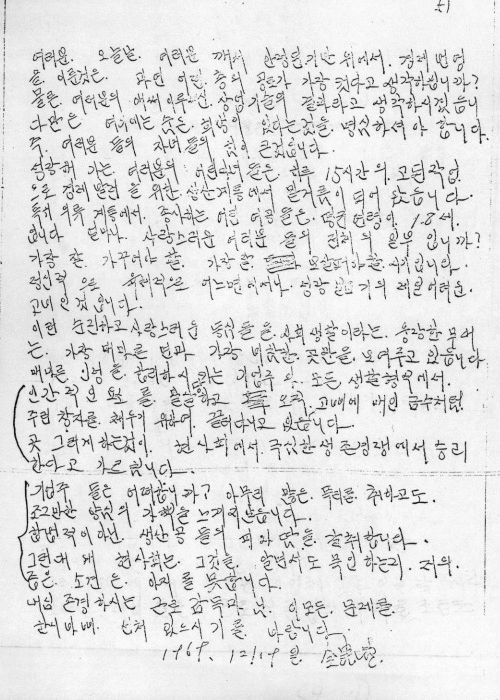 여러분. 오늘날. 여러분 께서 안정된 기반 위에서. 경제 번영
을. 이룬것은. 과연 어떤. 층의 공로가 가장 컷다고 생각하십니까?
물론. 여러분의 애써 이루신. 상업기술의 결과라고 생각하시겠읍니
다만은 여기에는 숨은. 희생이 있다는것을 명심하셔야 합니다.
즉. 여러분 들의 자녀들의 힘이 큰것입니다.
성장해 가는. 여러분의 어린 자녀들은. 하루 15시간의. 고된 작업
으로 경제 발전을 위한. 생산계통에서 밑거름이 되어 왔읍니다.
특히 의류 계통에서. 종사하는 어린 여공들은. 평균 연령이. 18세.
입니다 얼마나. 사랑스러운 여러분 들의 전체의 일부 입니까?
가장 잘. 가꾸어야 할. 가장 잘. 보살펴야 할. 시기입니다.
정신적 으로 육체적으로 어느면에서나. 성장 기의 제일 어려운.
고비인것 입니다.
이런 순진하고 사랑스러운 동심들을. 사회 생활이라는. 웅장한 무대
는. 가장 메마른 면과 가장 비참한. 곳만을. 보여주고 있읍니다.
메마른 인정을. 합리화시키는 기업주 와. 모든 생활형식에서.
인간적인 요소를. 말살 하고 오직. 고삐에 매인 금수처럼.
주린 창자를. 채우기 위하여. 끌려다니고 있읍니다.
곳 그렇게 하는것이. 현 사회에서. 극심한 생존경쟁에서 승리
한다고 가르칩니다.
기업주 들은 어떠합니까? 아무리 많은. 폭리를. 취하고도.
조그마한 양심의 가책을. 느끼지 않읍니다.
합법적이 아닌. 생산공 들의 피와 땀을. 갈취합니다.
그런데 왜 현사회는. 그것을. 알면서도 묵인 하는지. 저의.
좁은 소견은. 알지를 못합니다.
내심 존경하시는 근로 감독관 님. 이 모든. 문제를.
한시바삐. 선처 있으시기를. 바랍니다.
1969. 12월 19일.